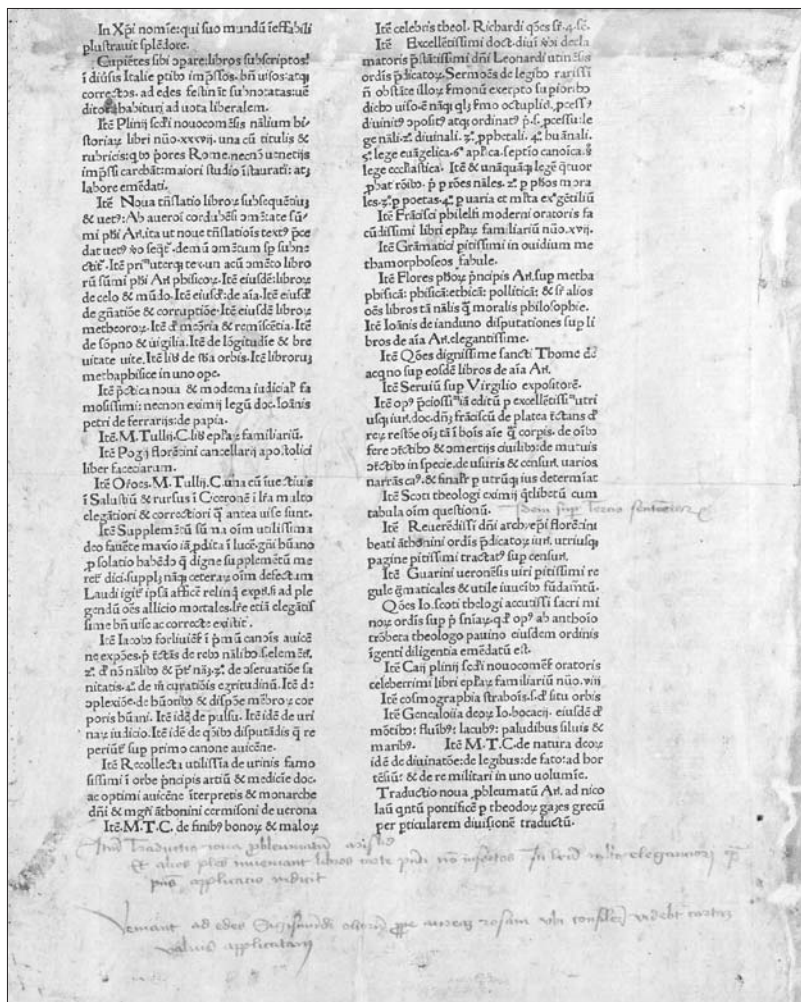 In Xp̄i nomīe: qui suo mundū īeffabili
plustrauit splēdore.
Cupiētes sibi opare: libros subscriptos:
ī diūsis Italie ptibo imp̄ssos. bn̄ uisos: atq;
correctos. ad edes festinēt subnotatas: uē
ditor habituri ad uota liberalem.
Itē Plinij scd̄i nouocomēsis nālium hi
storiaꝝ libri nūo. xxxvij. una cū titulis &
rubricis: q̄bo p̄ores Rome. necnō uenetijs
imp̄ssi carebāt: maiori studio īstaurati: atq;
labore emēdati.
Itē Noua trn̄slatio libroꝝ subsequētiuꝫ
& uetꝰ: Ab aueroi cordubēsi ꝯmētate sū
mi ph̄i Ar. ita ut noue trn̄slatiōis textꝰ p̄ce
dat uetꝰ seq̄t. demū ꝯmētum sp subne
ctit. Itē
rū sūmi ph̄i Ar. phisicoꝝ. Itē eiusdē: libroꝝ
de celo & mūdo. Itē eiusd̄: de aīa. Itē eiusd̄
de gn̄atiōe & corruptiōe. Itē eiusdē libroꝝ
metheoroꝝ. Itē d̄ meōria & remiscētia. Itē
de sōpno & uigilia. Itē de lōgitudīe & bre
uitate uite. Itē lib̄ de sb̄a orbis. Itē libroruꝫ
methaphisice in uno ope.
Itē p̄ctica noua & moderna iudicial̄ fa
mosissimi: necnon eximij legū doc. Ioānis
petri de ferrarijs: de papia.
Itē. M. Tullij. C. lib̄ epl̄aꝝ familiariū.
Itē Pogij florētini cancellarij apostolici
liber faceciarum.
Itē Orōes. M. Tullij. C. una cū īuectiuis
ī Salustiū & rursus ī Ciceronē ī lr̄a multo
elegātiori & correctiori q̄ antea uise sunt.
Itē Supplemētū sūma oīm utilissima
deo fauēte maxīo iā p̄dita ī lucē. gn̄i hūano
ꝑ solatio habēdo q̄ digne supplemētū me
ret̄ dici. supplꝫ nāq; ceteraꝝ oīm defectum
Laudi igit̄ ipsā afficē relinq̄ exp̄tꝭ. si ad ple
gendū oēs allicio mortales. lr̄e etiā elegātis
sime bn̄ uise ac correcte existūt.
Itē Iacobo forliuiēs̄ ī p̄mū canoīs auicē
ne expōes. p̄ tctās de rebo nālibo. s. elemēt̄.
ꝫ. d̄ nō nālibo & p̄t̄ nāꝫ. ꝫ. de ꝯseruatiōe sa
nitatis. 4. de īn curatiōis egritudinū. Itē de
ꝯplexiōe. de hūoribo & dispōe mēbroꝝ cor
poris hūani. Itē idē de pulsu. Itē idē de uri
naꝝ iudicio. Itē idē de q̄ōibo disputādis q̄ re
periūt̄ sup primo canone auicēne.
Itē Recollecta utilissīa de urinis famo
sissimi ī orbe p̄ncipis artiū & medicīe doc.
ac optimi auicēne īterpretis & monarche
dn̄i & mgr̄i āthonini cermisoni de uerona
Itē. M. T. C. de finibꝰ bonoꝝ & maloꝝ
Itē celebris theol. Richardi q̄ōes sr̄. 4. sē.
Itē Excellētissimi doct. diui decla
matoris p̄stātissimi dn̄i Leonardi utinēsis
ordīs p̄dicatoꝝ. Sermoēs de legibo rarissi
n̄ obstāte illoꝝ s̄monū exerpto supioribo
diebo uiso. ē nāq; ql̄ꝫ s̄mo octuplid. ꝓcessꝰ
diuinitꝰ ꝯpositꝰ atq; ordinatꝰ. p̄. s. ꝓcessu: le
ge nāli. ꝫ. diuinali. ꝫ. ꝓphetali. 4. hūanali.
5. lege euāgelica. 6. apl̄ica. septio canoica. 8
lege eccl̄iastica. Itē & unāquāq; legē q̄tuor
ꝓbat rōibo. p̄ p rōes nāles. ꝫ. p ph̄os mora
les. ꝫ. p poetas. 4. p uaria et mīsta exēgētiliū
Itē Frācisci philelfi moderni oratoris fa
cūdissimi libri epl̄aꝝ familiariū nūo. xvij.
Itē Grāmatici pitissimi in ouidium me
thamorphoseos fabule.
Itē Flores ph̄oꝝ p̄ncipis Ar. sup metha
phisicā: phisicā: ethicā: polliticā: & sr̄ alios
oēs libros tā nālis q̄ moralis philosophie.
Itē Ioānis de ianduno disputationes sup li
bros de aīa Ar. elegantissime.
Itē Q̄ōes dignissime sancti Thome de
acqno sup eosdē libros de aīa Ar.
Itē Seruiū sup Virgilio expositorē.
Itē opꝰ p̄ciosīssīa editū p excellētissīutri
usq; iur. doc. dn̄ꝫ frāciscū de platea tctans d̄
fere ꝯtctibo & ꝯmertijs ciuilibo: de mutuis
ꝯtctibo in specie. de usuris & censur. uarios
narrās caꝰ. & final̄r p utrūq; ius determīat
Itē Scoti theologi eximij q̄tlibetū cum
tabula oīm questionū.
Itē Reuerēdissi dn̄i archyepi florētini
beati āthonini ordīs p̄dicatoꝝ iur. utriusq;
pagine pitissimi tractatꝰ sup censur.
Itē Guarini ueronēsis uiri pitissimi re
gule grāmaticales & utile iuuēībo fūdamtū.
Q̄ōes Io. scoti theologi accutissi sacri mi
noꝝ ordīs sup p̄ sn̄iaꝝ. qd̄ opꝰ ab anthoio
trōbeta theologo pauino eiusdem ordinis
īgenti diligentia emēdatū est.
Itē Caij plinij scd̄i nouocomēs̄ oratoris
celeberrimi libri epl̄aꝝ familiariū nūo. viij
Itē cosmographia strabois. s. d̄ situ orbis
Itē Genealoiia deoꝝ Io. bocacij. eiusdē d̄
mōtibo: fluībꝰ: lacubꝰ: paludibus siluis &
maribꝰ. Itē M. T. C. de natura deoꝝ
idē de diuinatōe: de legibus: de fato: ad hor
tēsiū: & de re militari in uno uolumīe.
Traductio noua ꝓbleumatū Ar. ad nico
laū qntū pontificē p theodoꝝ gaꝫes grecū
per pticularem diuisionē traductū.
Itē Traductio noua ꝓbleumatum
Et alios libros
applicatio indicit
Veniant ad edes auream rosam ubi
valuis applicatam